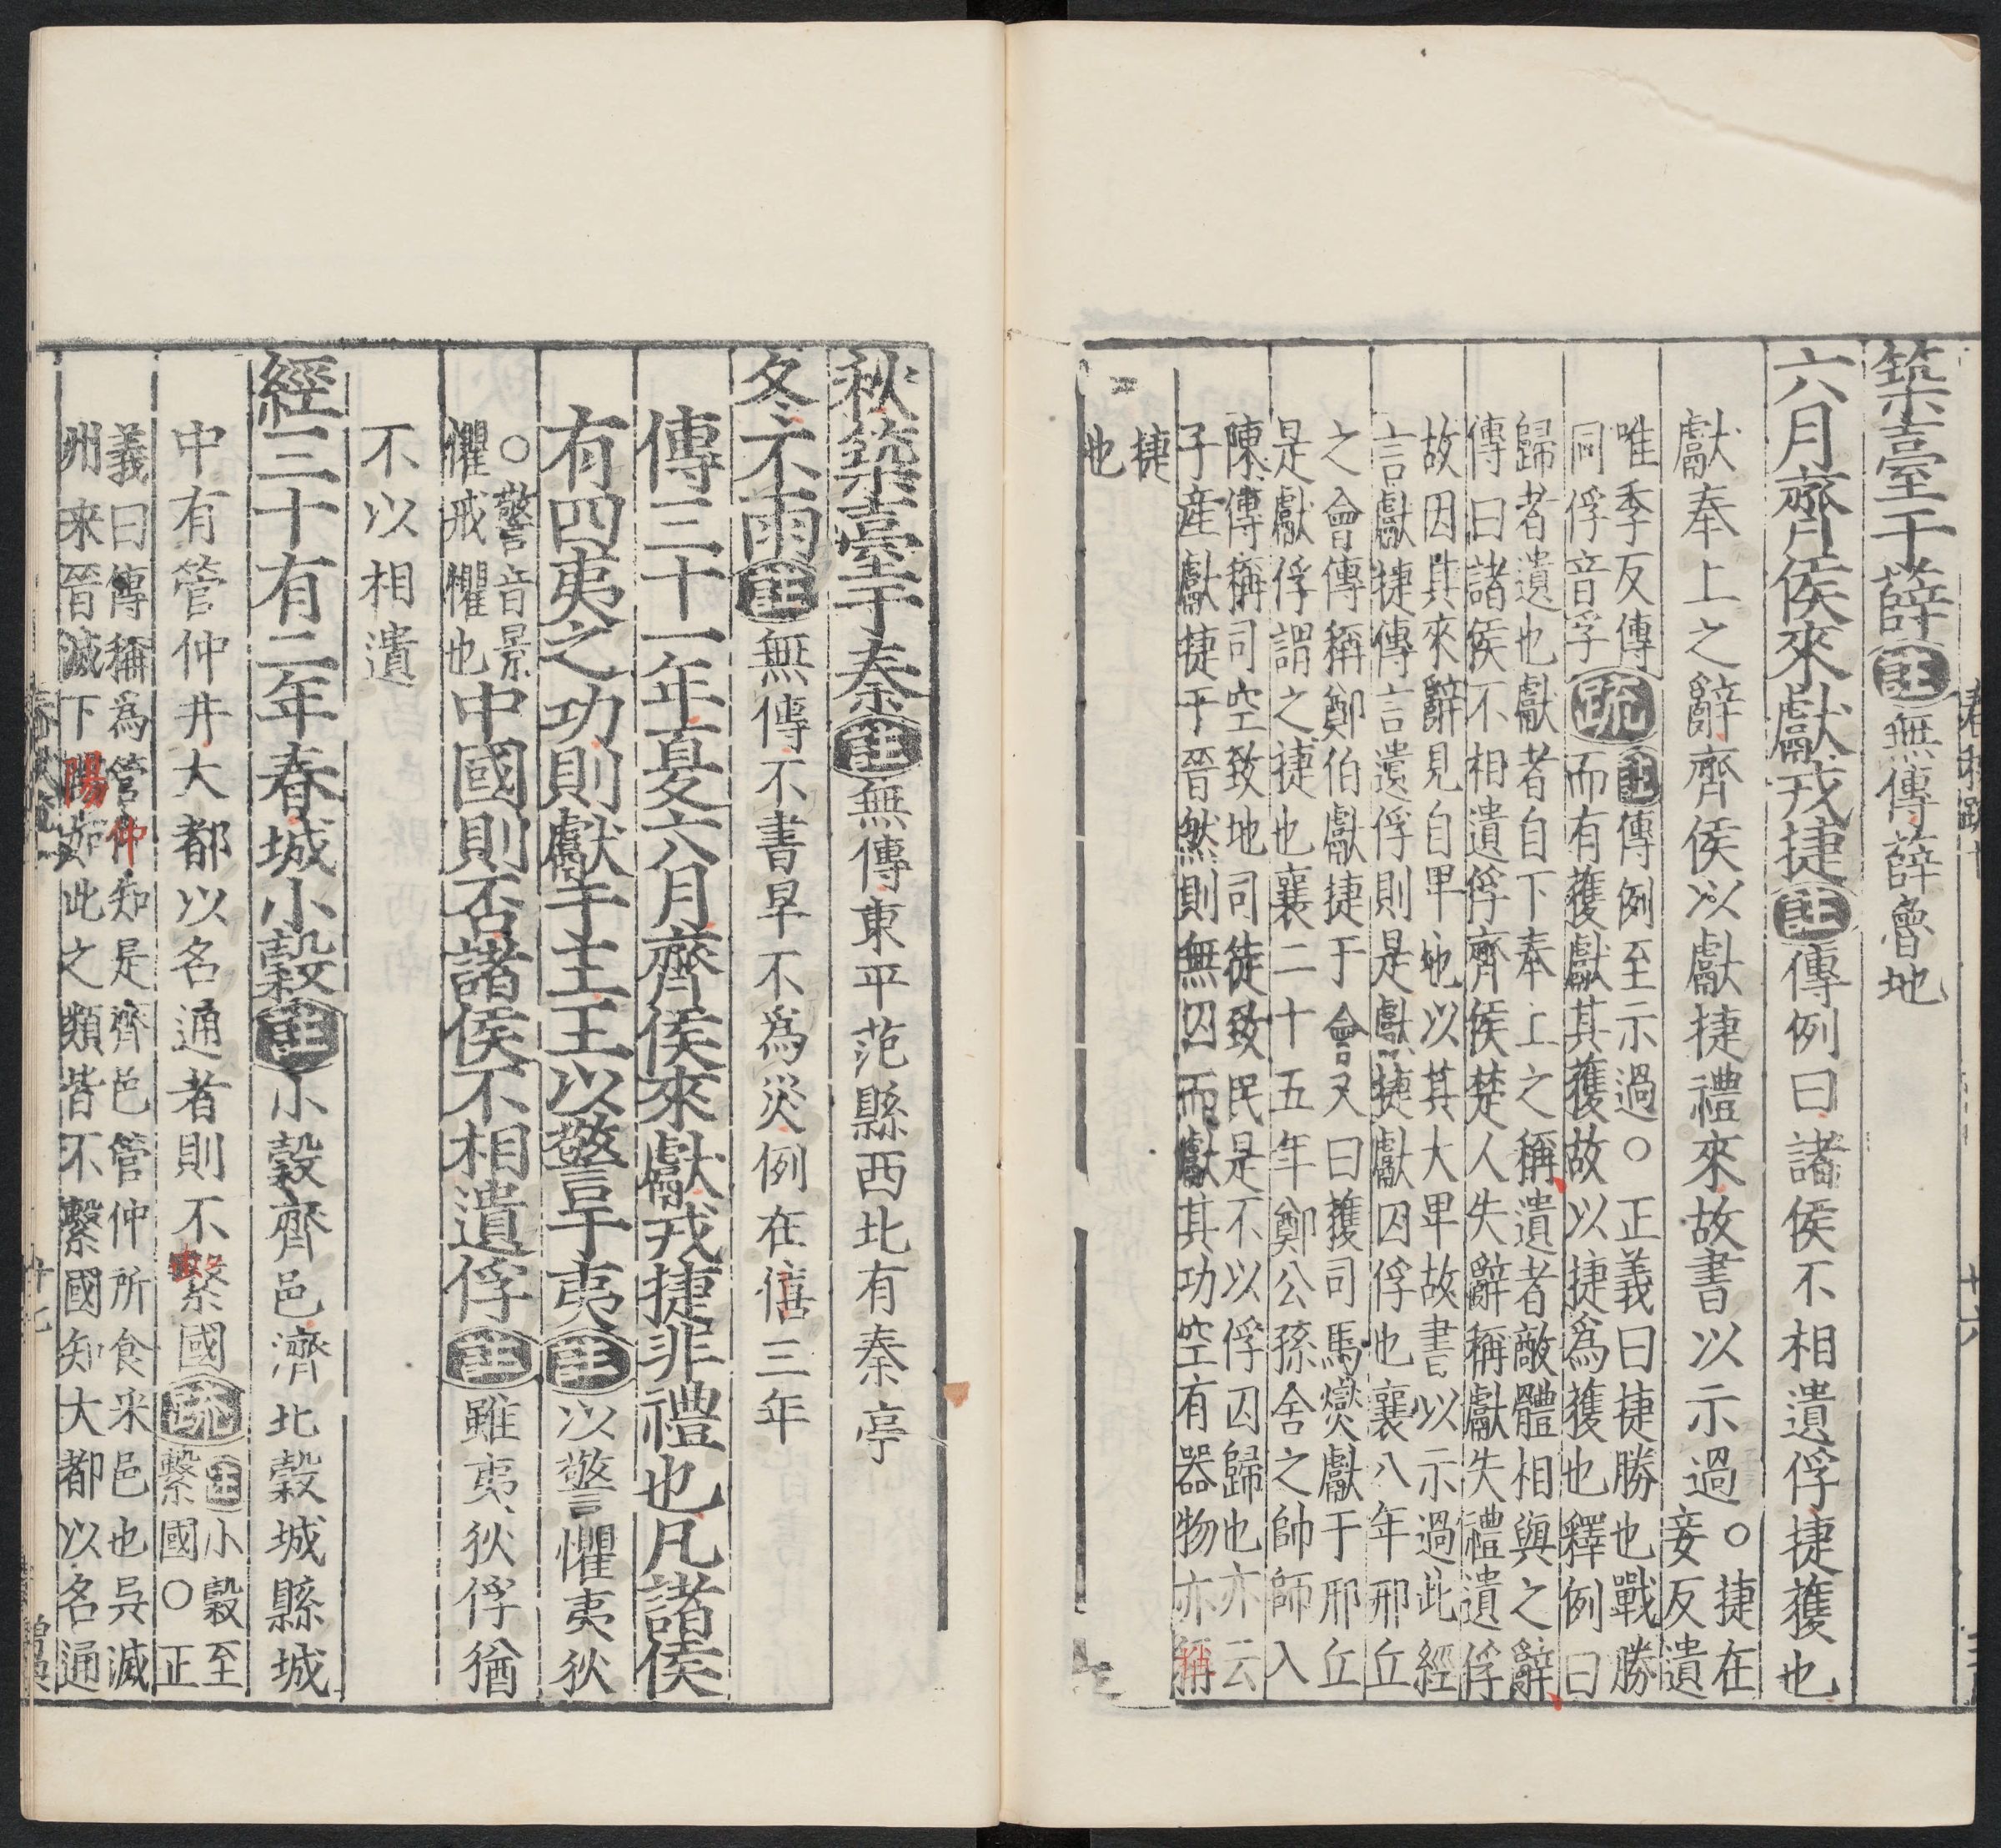 築臺于薛註無傳薛魯地
六月齊侯來獻戎捷註傳例曰諸侯不相遺俘捷獲也
獻奉上之辭齊侯以獻捷禮來故書以示過○捷在
妾反遺
唯季反傳
同俘音孚疏註傳例至示過○正義曰捷勝也戰勝
而有獲獻其獲故以捷爲獲也釋例曰
歸者遺也獻者自下奉上之稱遺者敵體相與之辭
傳曰諸侯不相遺俘齊侯楚人失辭稱獻失禮遺俘
故因其來辭見自卑也以其大卑故書以示過此經
言獻捷傳言遺俘則是獻捷獻囚俘也襄八年邢丘
之會傳稱鄭伯獻捷于會又曰獲司馬燮獻于邢丘
是獻俘謂之捷也襄二十五年鄭公孫舍之帥師入
陳傳稱司空致地司徒致民是不以俘囚歸也亦云
子産獻捷于晉然則無囚而獻其功空有器物亦稱
捷
也
秋築臺于秦註無傳東平范縣西北有秦亭
冬不雨註無傳不書旱不爲災例在僖三年
傳三十一年夏六月齊侯來獻戎捷非禮也凡諸侯
有四夷之功則獻于王王以警于夷註以警懼夷狄
○警音景
懼戒懼也中國則否諸侯不相遺俘註雖夷狄俘猶
不以相遺
經三十有二年春城小穀註小穀齊邑濟北穀城縣城
中有管仲井大都以名通者則不繫國疏註小穀至
繫國○正
義曰傳稱爲管仲知是齊邑管仲所食采邑也吳滅
州來晉滅下陽如此之類皆不繫國知大都以名通